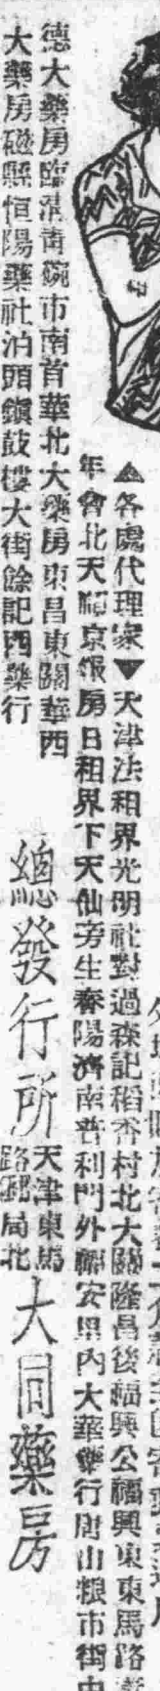 ▲各處代理家▼天津法租界光明社對過森記稻香村北大關隆昌後福興公福興東東馬路
年會北天順京報房日租界下天仙旁生春陽濟南普利門外福安里內大華藥行唐山糧市街中
德大藥房臨清青碗市南首華北大藥房東昌東關華西
大藥房磁縣恒陽藥社泊頭鎮鼓樓大街餘記西藥行
總發行所
天津東馬
路郵局北
大同藥房